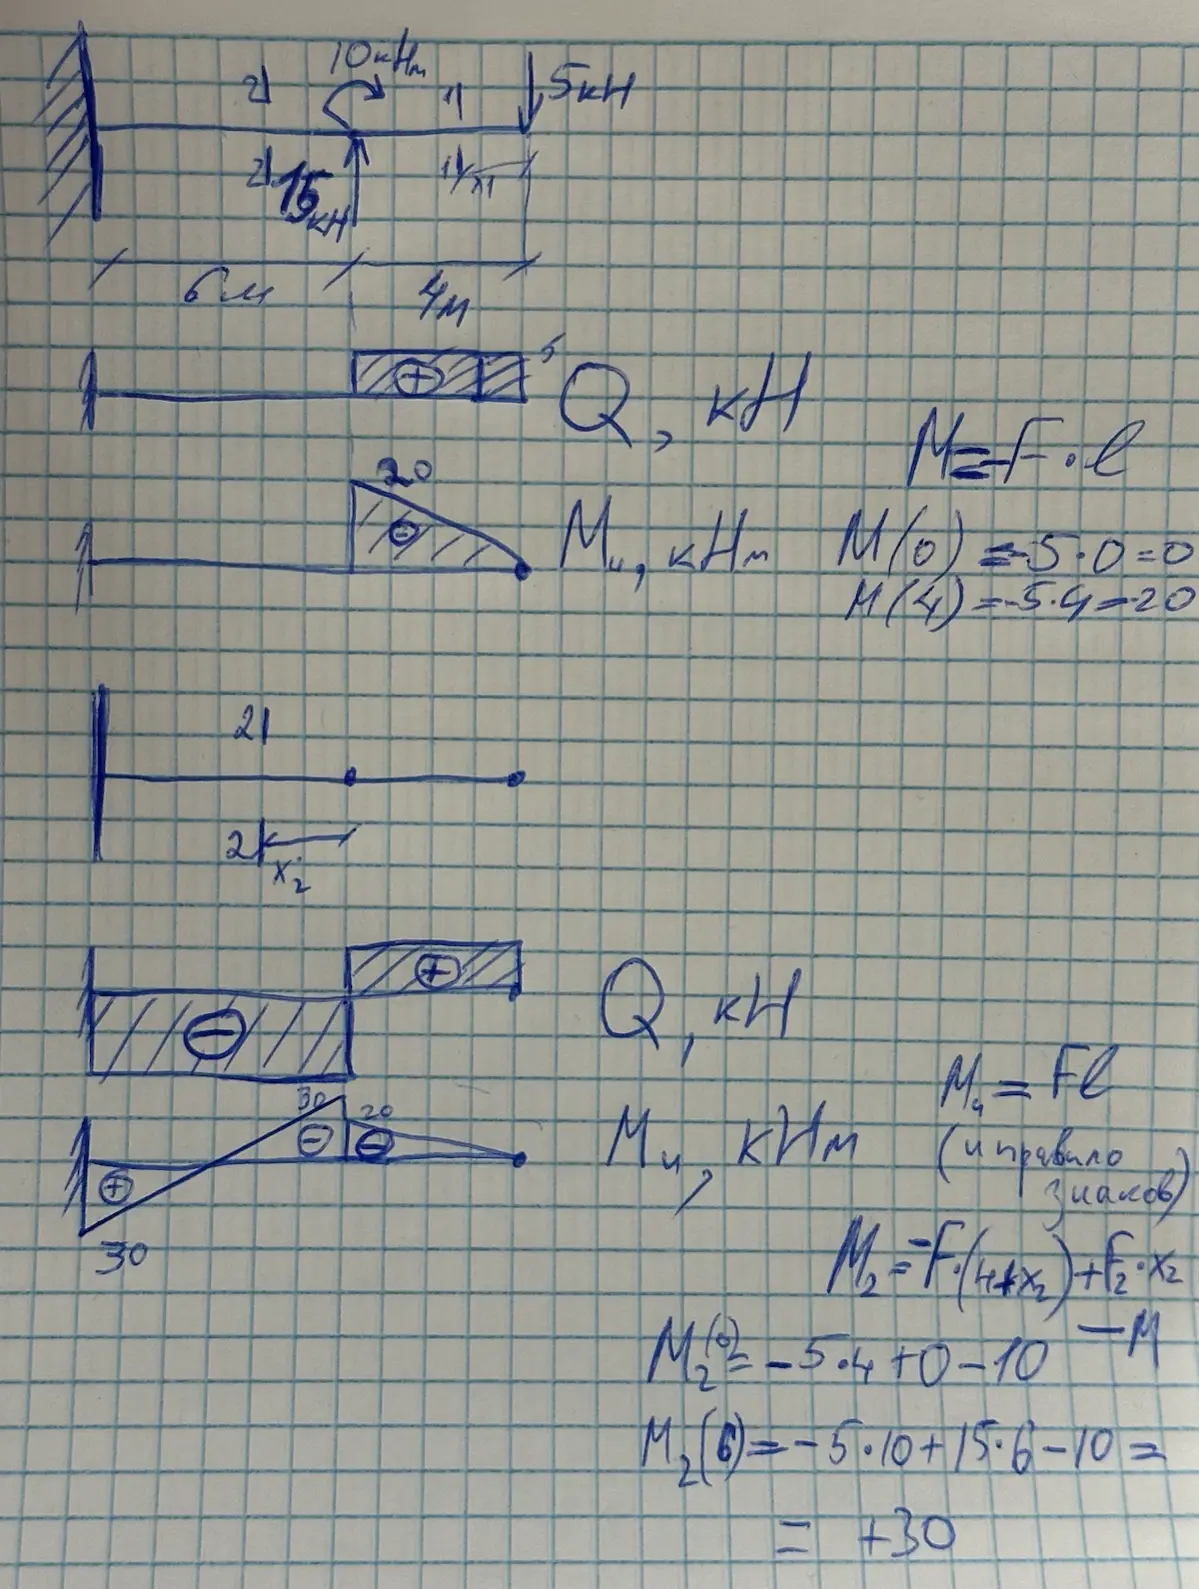 10кНм
2 1 5кН
2 15 кН 1 x1
6м 4м
+ 5 Q, кН
M=-F·l
20
- Mи, кНм
M(0)=-5·0=0
M(4)=-5·4=-20
2
2 x2
+ Q, кН
-
Mи=Fl
(и правило знаков)
30 20
- - Mи, кНм
+
30
M2=-F·(4+x2)+F2·x2
-M
M2(0)=-5·4+0-10
M2(6)=-5·10+15·6-10=
= +30